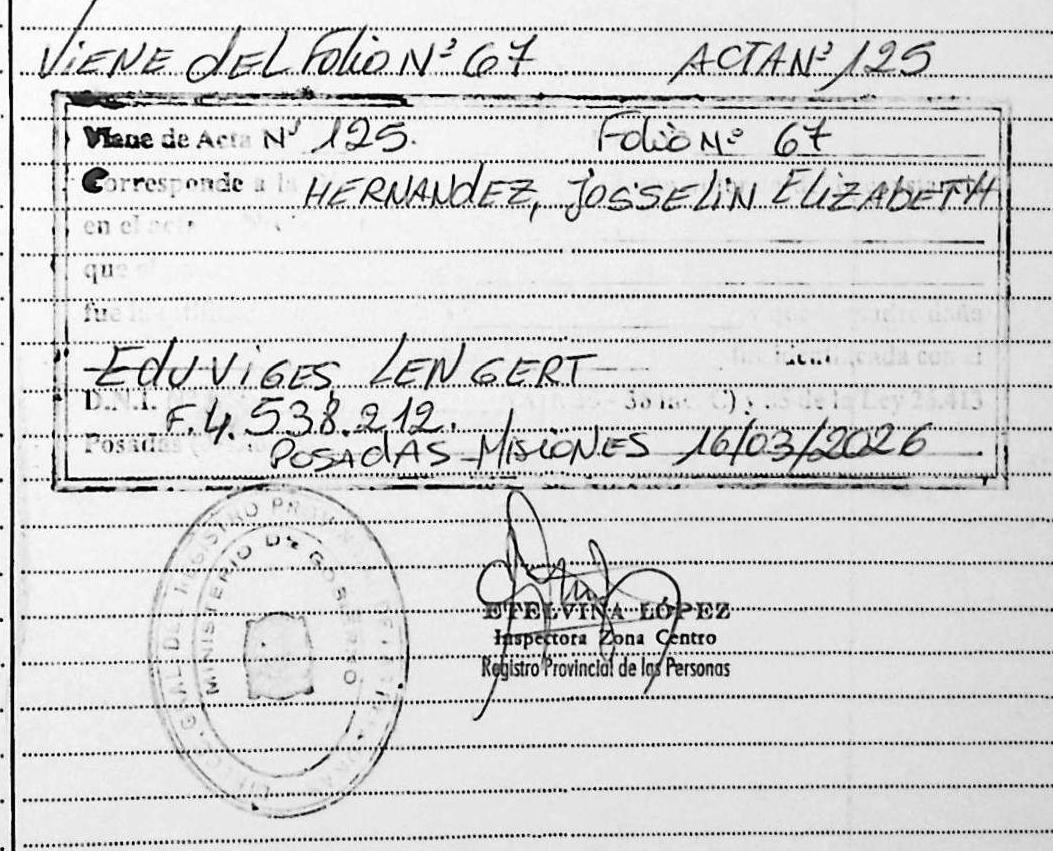 VIENE DEL FOLIO Nº 67 ACTA Nº 125
Viene de Acta Nº 125. FOLIO Nº 67
Corresponde a la HERNANDEZ, JOSSELIN ELIZABETH
en el acta
que
fue
EDUVIGES LENGERT
identificada con el
D.N.I. F.4.538.212. 36 inc. C) y de la Ley 26.413
Posadas POSADAS - MISIONES 16/03/2026
MINISTERIO DE GOBIERNO
ETELVINA LÓPEZ
Inspectora Zona Centro
Registro Provincial de las Personas